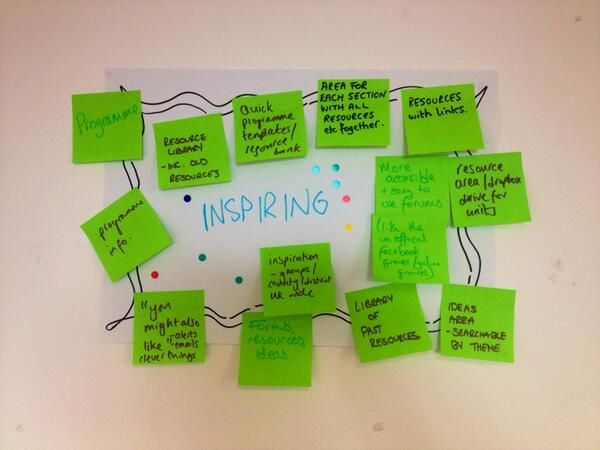 Programme
RESOURCE
LIBRARY
- INC. OLD
RESOURCES
Quick
programme
templates/
resource
bank
AREA FOR
EACH SECTION
WITH ALL
RESOURCES
etc together.
RESOURCES
with links.
More
accesible
+ easy to
use forums
(like the
unofficial
facebook
groups/
groups)
resource
area/dropbox
drive for
units
INSPIRING
programme
info.
inspiration
- groups/
county/district
UK wide
"you
might also
like"
alerts
emails
clever things
Forms,
resources,
ideas.
LIBRARY
OF
PAST
RESOURCES
IDEAS
AREA
- SEARCHABLE
BY THEME.